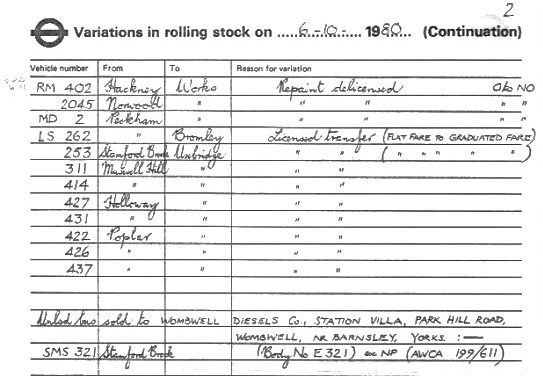 2
Variations in rolling stock on .....6.-10-..... 1980... (Continuation)
Vehicle number From To Reason for variation
RM 402 Hackney Works Repaint delicensed O to NO
2045 Norwood " " " " "
MD 2 Peckham " " " " "
LS 262 " Bromley Licensed transfer (FLAT FARE TO GRADUATED FARE)
253 Stamford Brook Uxbridge " " ( " " " " " )
311 Muswell Hill " " "
414 " " " "
427 Holloway " " "
431 " " " "
422 Poplar " " "
426 " " " "
437 " " " "
Unlsd bus sold to WOMBWELL DIESELS Co., STATION VILLA, PARK HILL ROAD,
WOMBWELL, NR BARNSLEY, YORKS. :—
SMS 321 Stamford Brook (Body No E321) ex NP (AWCA 199/611)